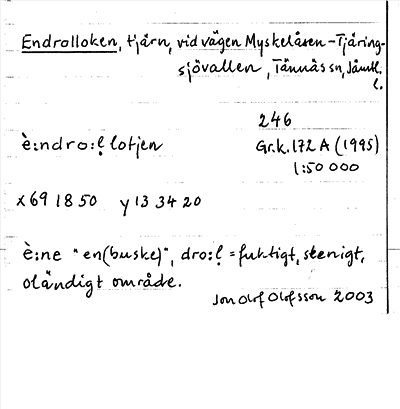 Endrolloken, tjärn, vid vägen Myskelåsen-Tjåring-
sjövallen, Tännäs sn, Jämtl.
l.
246
è:ndro:ḷ lotjen Gr.k. 172 A (1995)
1:50 000
x 69 18 50 y 13 34 20
è:ne "en(buske)", dro:ḷ = fuktigt, stenigt,
oländigt område.
Jon Olof Olofsson 2003